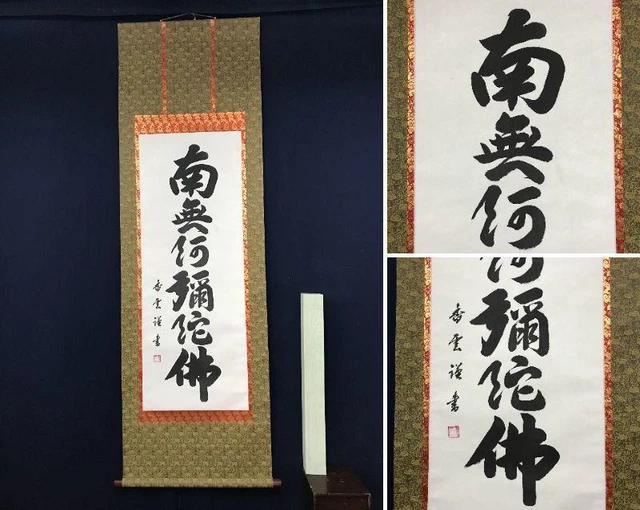 南無阿彌陀佛
香雲謹書
南無阿
阿彌陀佛
香雲謹書